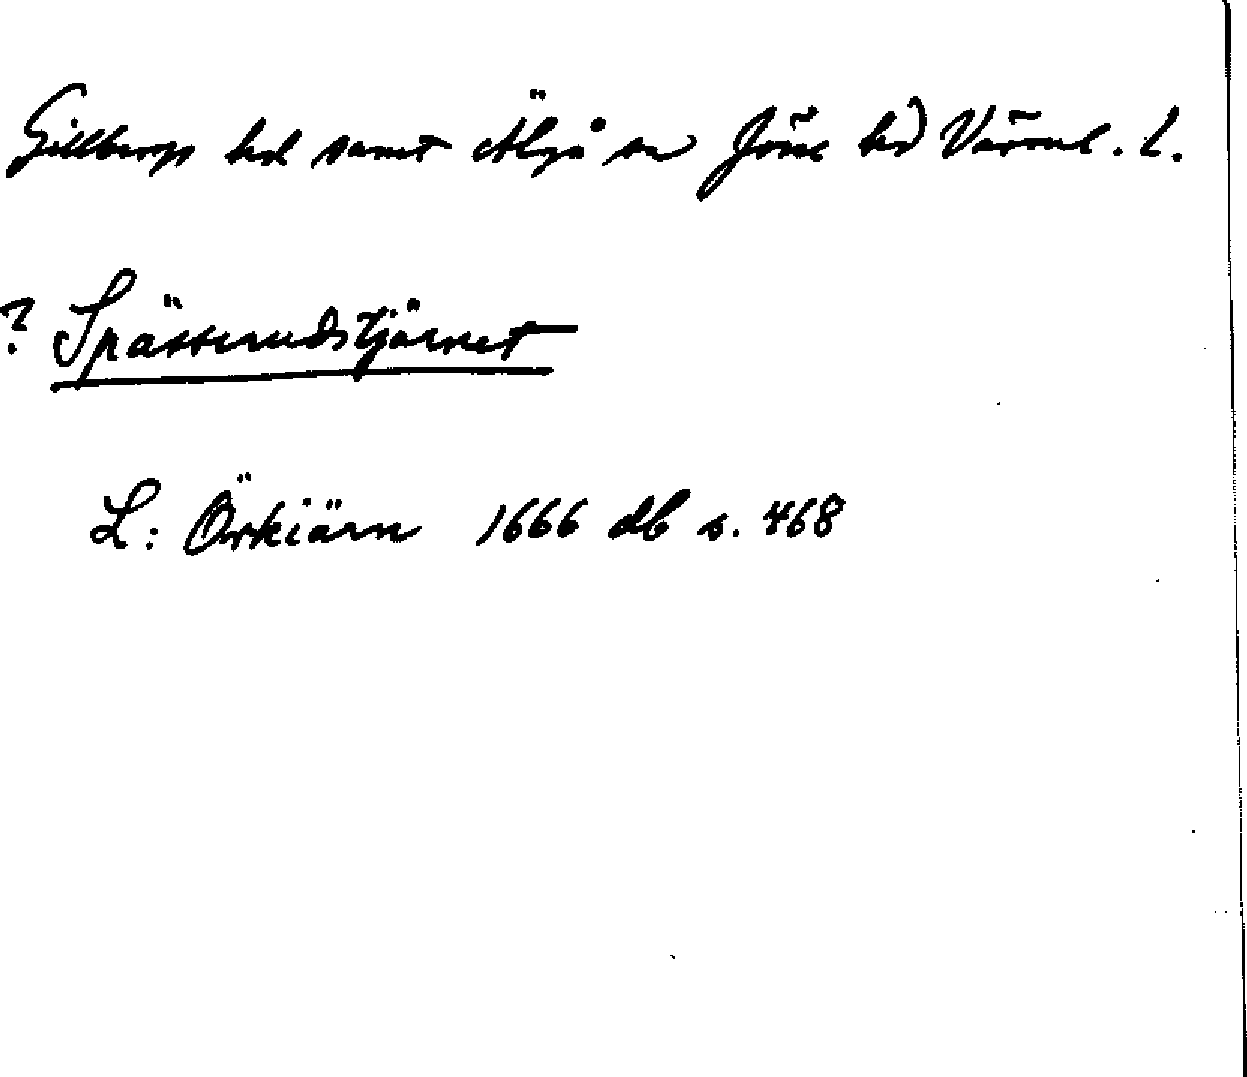 Gillbergs hd samt Älgå sn Jösse hd Värml. l.
? Spässerudstjärnet
L: Örkiärn 1666 db s. 468